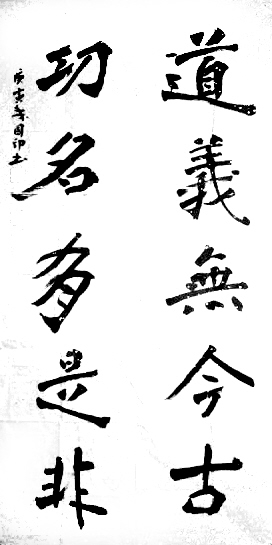 道義無今古
功名多是非
庚寅年國印書